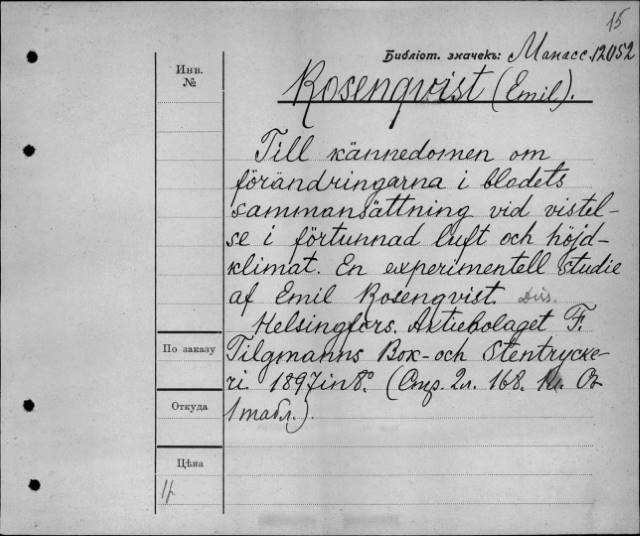 15
Библіот. значекъ: Манасс. 12052
Инв.
№
Rosenqvist (Emil).
Till kännedomen om
förändringarna i blodets
sammansättning vid vistel-
se i förtunnad luft och höjd-
klimat. En experimentell studie
af Emil Rosenqvist. Diss.
Helsingfors. Aktiebolaget F.
По заказу
Tilgmanns Bok- och Stentrycke-
ri 1897 in 8°. (Стр. 2л. 168. Съ
Откуда
1 табл.).
Цѣна